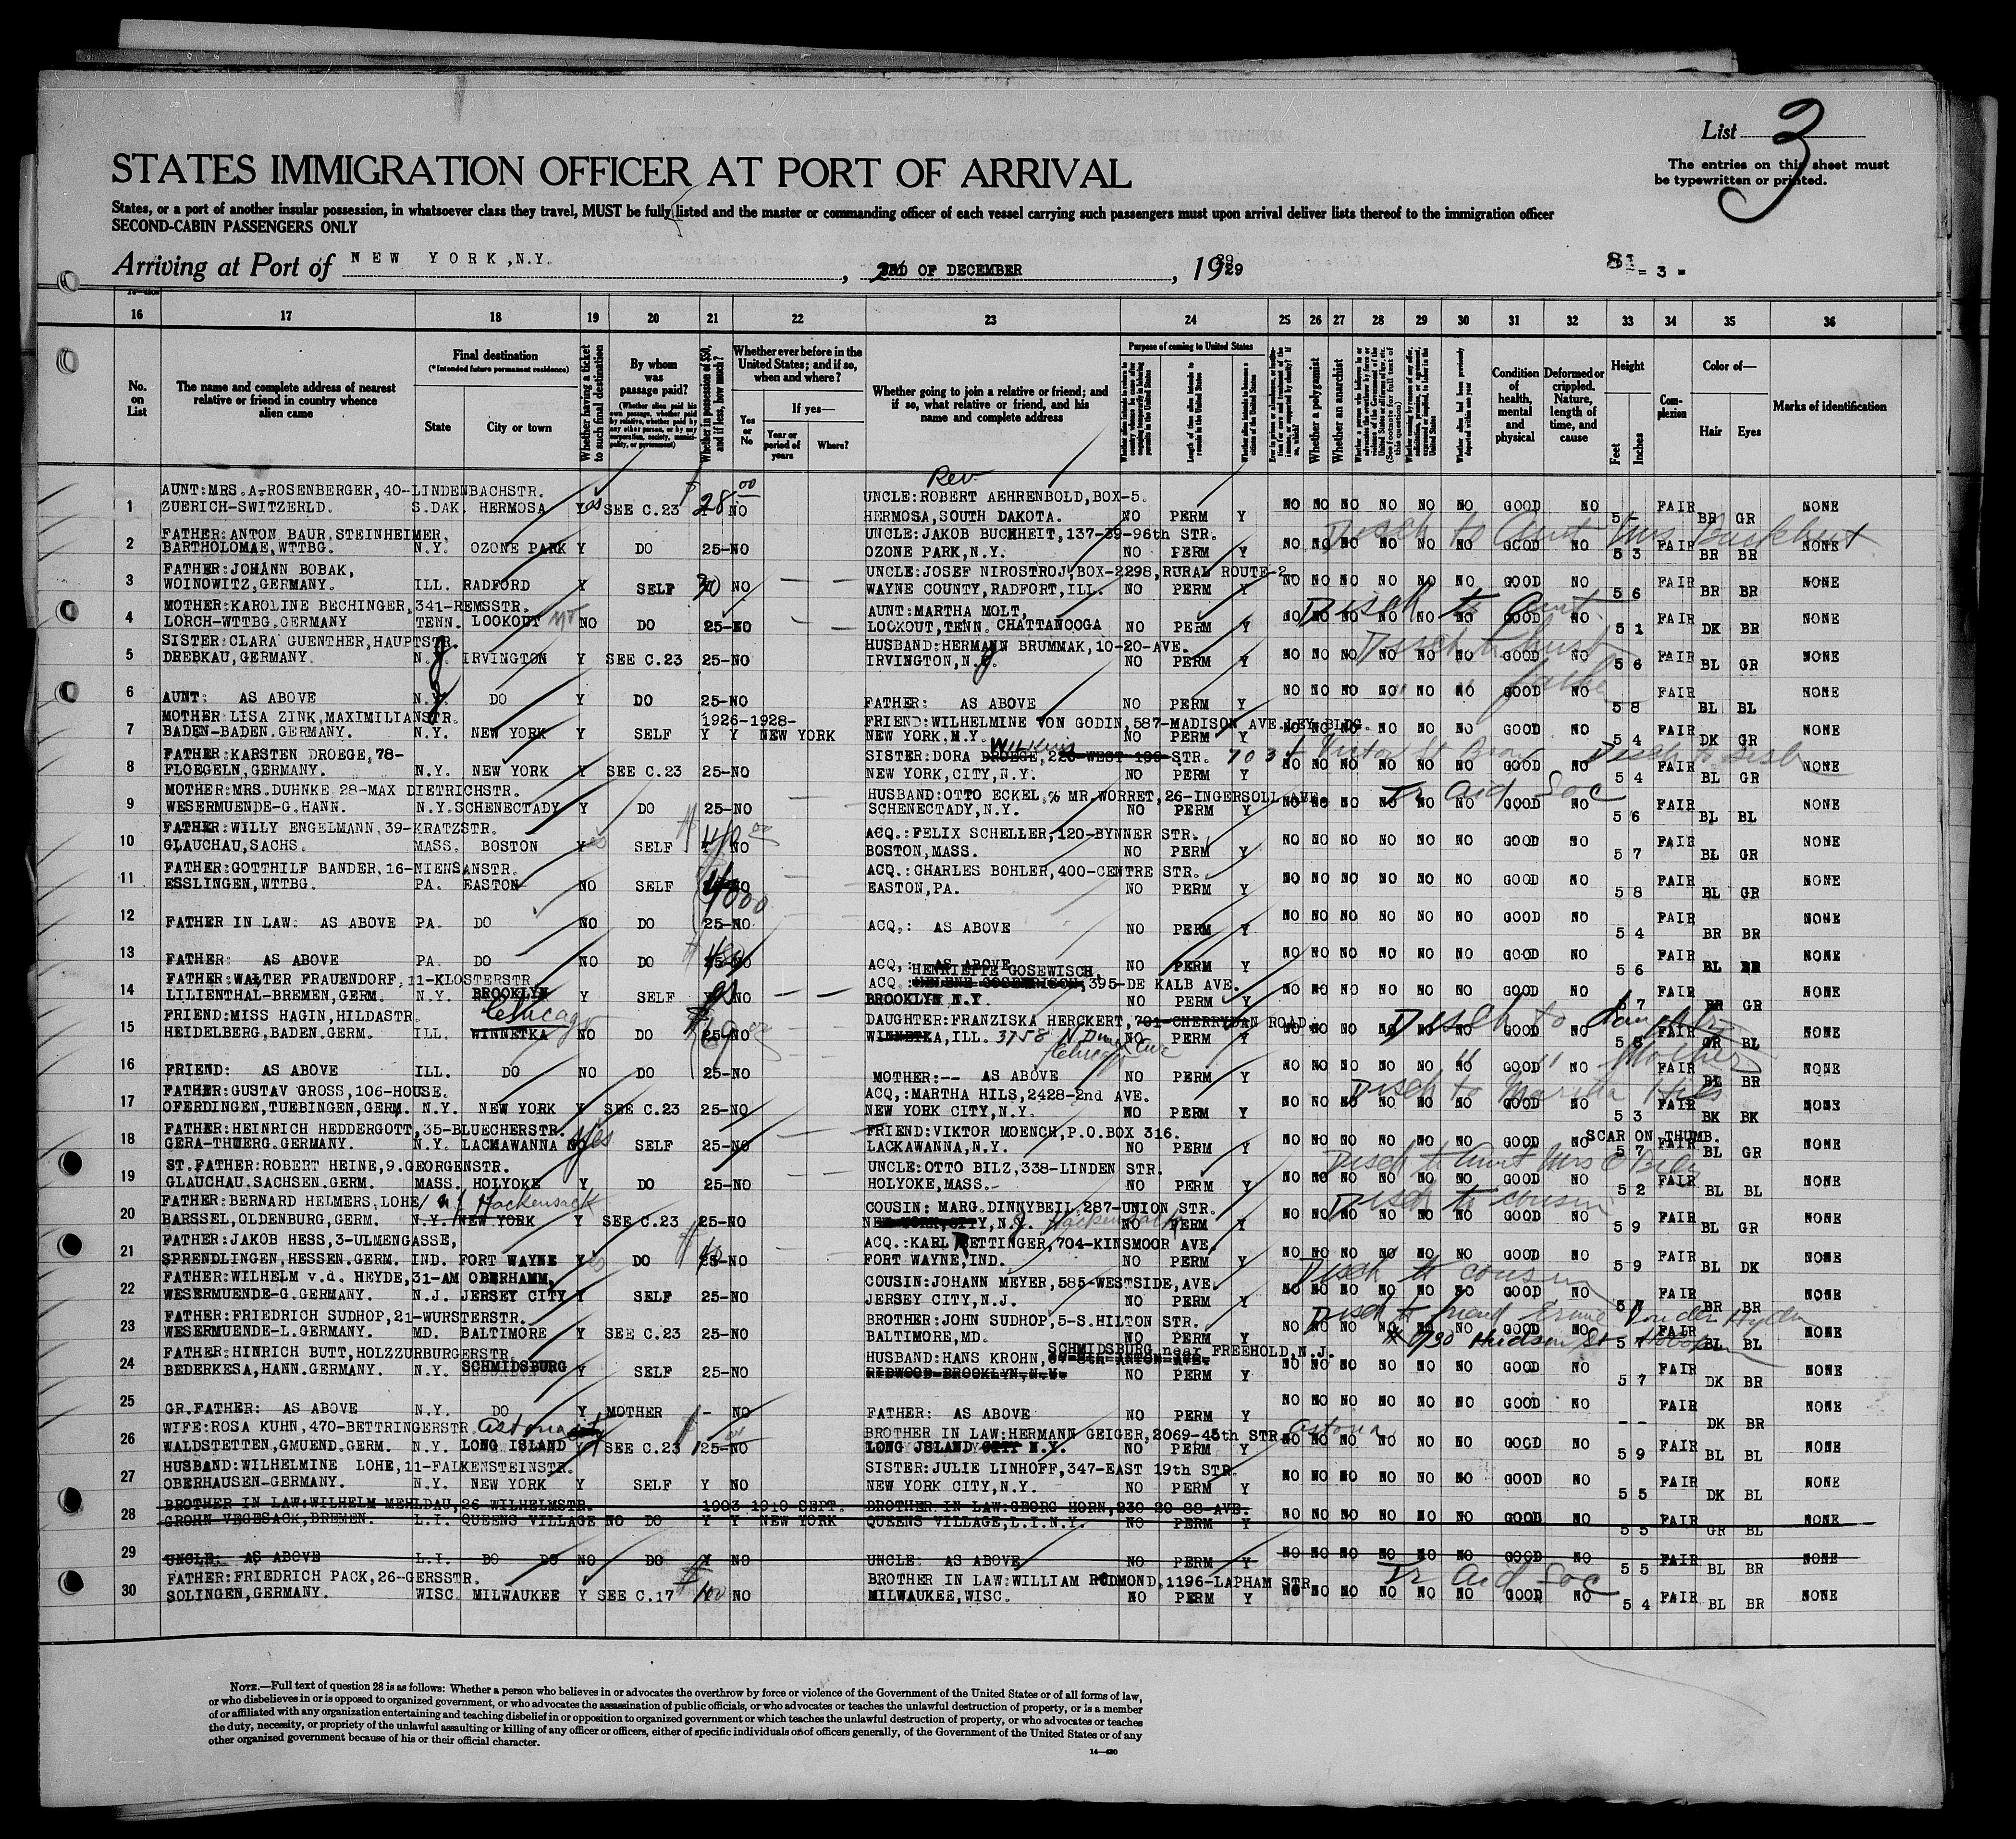 List 3
The entries on this sheet must
be typewritten or printed.
STATES IMMIGRATION OFFICER AT PORT OF ARRIVAL
States, or a port of another insular possession, in whatsoever class they travel, MUST be fully listed and the master or commanding officer of each vessel carrying such passengers must upon arrival deliver lists thereof to the immigration officer
SECOND-CABIN PASSENGERS ONLY
Arriving at Port of NEW YORK, N.Y., 2ND OF DECEMBER, 1929
- 3 -
16 17 18 19 20 21 22 23 24 25 26 27 28 29 30 31 32 33 34 35 36
No. on List
The name and complete address of nearest relative or friend in country whence alien came
Final destination
(*Intended future permanent residence)
State City or town
Whether having a ticket to such final destination
By whom was passage paid?
(Whether alien paid his own passage, whether paid by relative, whether paid by any other person, or by any corporation, society, municipality, or government)
Whether in possession of $50, and if less, how much?
Whether ever before in the United States; and if so, when and where?
Yes or No
If yes—
Year or period of years Where?
Whether going to join a relative or friend; and if so, what relative or friend, and his name and complete address
Purpose of coming to United States
Length of time alien intends to remain in the United States
Whether alien intends to become a citizen of the United States
Whether a polygamist
Whether an anarchist
Condition of health, mental and physical
Deformed or crippled. Nature, length of time, and cause
Height
Feet Inches
Complexion
Color of—
Hair Eyes
Marks of identification
Rev.
AUNT:MRS.A.ROSENBERGER,40-LINDENBACHSTR. UNCLE:ROBERT AEHRENBOLD,BOX-5.
1 ZUERICH-SWITZERLD. S.DAK. HERMOSA Yes SEE C.23 28 00 NO HERMOSA,SOUTH DAKOTA. NO PERM Y NO NO NO NO NO NO GOOD NO 5 - FAIR BR GR NONE
FATHER:ANTON BAUR,STEINHEIMER, UNCLE:JAKOB BUCHHEIT,137-39-96th STR. Disch to Aunt Mrs Buchheit
2 BARTHOLMAE,WTTBG. N.Y. OZONE PARK Y DO 25-NO OZONE PARK,N.Y. NO PERM Y NO NO NO NO NO NO GOOD NO 5 3 FAIR BR BR NONE
FATHER:JOHANN BOBAK, UNCLE:JOSEF NIROSTROJ,BOX-2298,RURAL ROUTE-2
3 WOINOWITZ,GERMANY. ILL. RADFORD Y SELF 30 NO WAYNE COUNTY,RADFORT,ILL. NO PERM Y NO NO NO NO NO NO GOOD NO 5 6 FAIR BR BR NONE
MOTHER:KAROLINE BECHINGER,341-REMSSTR. AUNT:MARTHA MOLT, Disch to Aunt
4 LORCH-WTTBG.GERMANY TENN. LOOKOUT MT NO DO 25-NO LOOKOUT,TENN. CHATTANOOGA NO PERM Y NO NO NO NO NO NO GOOD NO 5 1 FAIR DK BR NONE
SISTER:CLARA GUENTHER,HAUPTSTR. HUSBAND:HERMANN BRUMMAK,10-20-AVE. Disch to husb
5 DREBKAU,GERMANY. N.J. IRVINGTON Y SEE C.23 25-NO IRVINGTON,N.J. NO PERM Y NO NO NO NO NO NO GOOD NO 5 6 FAIR BL GR NONE
6 AUNT: AS ABOVE N.J. DO Y DO 25-NO FATHER: AS ABOVE NO PERM Y NO NO NO NO NO NO GOOD NO 5 8 FAIR BL BL NONE
" " father
MOTHER:LISA ZINK,MAXIMILIANSTR. 1926-1928- FRIEND:WILHELMINE VON GODIN,587-MADISON AVE.LEY BLDG.
7 BADEN-BADEN.GERMANY. N.Y. NEW YORK Y SELF Y Y NEW YORK NEW YORK,N.Y. NO PERM Y NO NO NO NO NO NO GOOD NO 5 4 FAIR DK GR NONE
FATHER:KARSTEN DROEGE,78- SISTER:DORA DROEGE Wilkins STR. 703
8 FLOEGELN,GERMANY. N.Y. NEW YORK Y SEE C.23 25-NO NEW YORK,CITY,N.Y. NO PERM Y NO NO NO NO NO NO GOOD NO 5 4 FAIR BL GR NONE
MOTHER:MRS.DUHNKE 28-MAX DIETRICHSTR. HUSBAND:OTTO ECKEL,% MR.WORRET,26-INGERSOLL AVE. Tr Aid Soc
9 WESERMUENDE-G.HANN. N.Y. SCHENECTADY Y DO 25-NO SCHENECTADY,N.Y. NO PERM Y NO NO NO NO NO NO GOOD NO 5 6 FAIR BL BL NONE
FATHER:WILLY ENGELMANN,39-KRATZSTR. ACQ.:FELIX SCHELLER,120-BYNNER STR.
10 GLAUCHAU,SACHS. MASS. BOSTON Yes SELF 40 00 NO BOSTON,MASS. NO PERM Y NO NO NO NO NO NO GOOD NO 5 7 FAIR BL GR NONE
FATHER:GOTTHILF BANDER,16-NIENSANSTR. ACQ.:CHARLES BOHLER,400-CENTRE STR.
11 ESSLINGEN,WTTBG. PA. EASTON NO SELF NO EASTON,PA. NO PERM Y NO NO NO NO NO NO GOOD NO 5 8 FAIR BL GR NONE
12 FATHER IN LAW: AS ABOVE PA. DO NO DO 25-NO ACQ.: AS ABOVE NO PERM Y NO NO NO NO NO NO GOOD NO 5 4 FAIR BR BR NONE
13 FATHER: AS ABOVE PA. DO NO DO NO ACQ.: AS ABOVE NO PERM Y NO NO NO NO NO NO GOOD NO 5 6 FAIR BL NONE
FATHER:WALTER FRAUENDORF,11-KLOSTERSTR. ACQ.: HENRIETTE GOSEWISCH, 395-DE KALB AVE.
14 LILIENTHAL-BREMEN,GERM. N.Y. BROOKLYN Y SELF NO BROOKLYN N.Y. NO PERM Y NO NO NO NO NO NO GOOD NO 5 7 FAIR GR NONE
FRIEND:MISS HAGIN,HILDASTR. Chicago DAUGHTER:FRANZISKA HERCKERT,701-CHERRYDAN ROAD. Disch to daughter
15 HEIDELBERG,BADEN.GERM. ILL. WINNETKA NO DO 25-NO WINNETKA,ILL. 3758 N Chicago NO PERM Y NO NO NO NO NO NO GOOD NO FAIR GR BL NONE
16 FRIEND: AS ABOVE ILL. DO NO DO 25-NO MOTHER:-- AS ABOVE NO PERM Y NO NO NO NO NO NO GOOD NO FAIR BR NONE
" " Mother
FATHER:GUSTAV GROSS,106-HOUSE. ACQ.:MARTHA HILS,2428-2nd AVE. Disch to Martha Hils
17 OFERDINGEN,TUEBINGEN,GERM. N.Y. NEW YORK Y SEE C.23 25-NO NEW YORK CITY,N.Y. NO PERM Y NO NO NO NO NO NO GOOD NO 5 3 FAIR BK BK NONE
FATHER:HEINRICH HEDDERGOTT,35-BLUECHERSTR. FRIEND:VIKTOR MOENCH,P.O.BOX 316. SCAR ON THUMB.
18 GERA-THUERG.GERMANY. N.Y. LACKAWANNA yes SELF 25-NO LACKAWANNA,N.Y. NO PERM Y NO NO NO NO NO NO GOOD NO 5 7 FAIR BL GR NONE
ST.FATHER:ROBERT HEINE,9.GEORGENSTR. UNCLE:OTTO BILZ,338-LINDEN STR. Disch to Aunt Mrs O Bilz
19 GLAUCHAU.SACHSEN.GERM. MASS. HOLYOKE Y DO 25-NO HOLYOKE,MASS.- NO PERM Y NO NO NO NO NO NO GOOD NO 5 2 FAIR BL BL NONE
FATHER:BERNARD HELMERS,LOHE/ N.J. Hackensack COUSIN: MARG.DINNYBEIL,287-UNION STR. Disch to cousin
20 BARSSEL,OLDENBURG,GERM. N.Y. NEW YORK Y SEE C.23 25-NO NEW YORK,CITY,N.J. Hackensack NO PERM Y NO NO NO NO NO NO GOOD NO 5 9 FAIR BL GR NONE
FATHER:JAKOB HESS,3-ULMENGASSE, ACQ.:KARL BETTINGER,704-KINSMOOR AVE.
21 SPRENDLINGEN,HESSEN.GERM. IND. FORT WAYNE Yes DO NO FORT WAYNE,IND. NO PERM Y NO NO NO NO NO NO GOOD NO 5 9 FAIR BL DK NONE
FATHER:WILHELM v.d. HEYDE,31-AM OBERHAMM, COUSIN:JOHANN MEYER,585-WESTSIDE,AVE. Disch to cousin
22 WESERMUENDE-G.GERMANY. N.J. JERSEY CITY Y SELF 25-NO JERSEY CITY,N.J. NO PERM Y NO NO NO NO NO NO GOOD NO 5 FAIR BR BR NONE
FATHER:FRIEDRICH SUDHOP,21-WURSTERSTR. BROTHER:JOHN SUDHOP,5-S.HILTON STR. Disch to friend
23 WESERMUENDE-L.GERMANY. MD. BALTIMORE Y SEE C.23 25-NO BALTIMORE,MD. NO PERM Y NO NO NO NO NO NO GOOD NO 5 FAIR BL BL NONE
Hudson St Hoboken
FATHER:HINRICH BUTT,HOLZZURBURGERSTR. HUSBAND:HANS KROHN, SCHMIDSBURG near FREEHOLD,N.J.
24 BEDERKESA,HANN.GERMANY. N.Y. SCHMIDSBURG Y SELF 25-NO RIDWOOD-BROOKLYN,N.Y. NO PERM Y NO NO NO NO NO NO GOOD NO 5 7 FAIR DK BR NONE
25 GR.FATHER: AS ABOVE N.Y. DO Y MOTHER - NO FATHER: AS ABOVE NO PERM Y NO NO NO NO NO NO GOOD NO -- FAIR DK BR NONE
WIFE:ROSA KUHN,470-BETTRINGERSTR. Astoria BROTHER IN LAW:HERMANN GEIGER,2069-45th STR. Astoria
26 WALDSTETTEN,GMUEND.GERM. N.Y. LONG ISLAND Y SEE C.23 25-NO LONG ISLAND CITY N.Y. NO PERM Y NO NO NO NO NO NO GOOD NO 5 9 FAIR BL BL NONE
HUSBAND:WILHELMINE LOHE,11-FALKENSTEINSTR. SISTER:JULIE LINHOFF,347-EAST 19th STR.
27 OBERHAUSEN-GERMANY. N.Y. NEW YORK Y SELF Y NO NEW YORK CITY,N.Y. NO PERM Y NO NO NO NO NO NO GOOD NO 5 5 FAIR DK BL NONE
BROTHER IN LAW:WILHELM MEHLDAU,26-WILHELMSTR. 1903-1910-SEPT. BROTHER IN LAW:GEORG HORN,230-20-88-AVE.
28 GROHN-VEGESACK,BREMEN. L.I. QUEENS VILLAGE NO DO Y Y NEW YORK QUEENS VILLAGE,L.I.N.Y. NO PERM Y NO NO NO NO NO NO GOOD NO 5 5 FAIR GR BL NONE
29 UNCLE: AS ABOVE L.I. DO DO NO DO Y NO UNCLE: AS ABOVE NO PERM Y NO NO NO NO NO NO GOOD NO 5 5 FAIR BL BR NONE
FATHER:FRIEDRICH PACK,26-GERSSTR. BROTHER IN LAW:WILLIAM RODMOND,1196-LAPHAM STR. Tr Aid Soc
30 SOLINGEN,GERMANY. WISC. MILWAUKEE Y SEE C.17 100 NO MILWAUKEE,WISC. NO PERM Y NO NO NO NO NO NO GOOD NO 5 4 FAIR BL BR NONE
NOTE.—Full text of question 28 is as follows: Whether a person who believes in or advocates the overthrow by force or violence of the Government of the United States or of all forms of law,
or who disbelieves in or is opposed to organized government, or who advocates the assassination of public officials, or who advocates or teaches the unlawful destruction of property, or is a member
of or affiliated with any organization entertaining and teaching disbelief in or opposition to organized government or which teaches the unlawful destruction of property, or who advocates or teaches
the duty, necessity, or propriety of the unlawful assaulting or killing of any officer or officers, either of specific individuals or of officers generally, of the Government of the United States or of any
other organized government because of his or their official character.
14—430